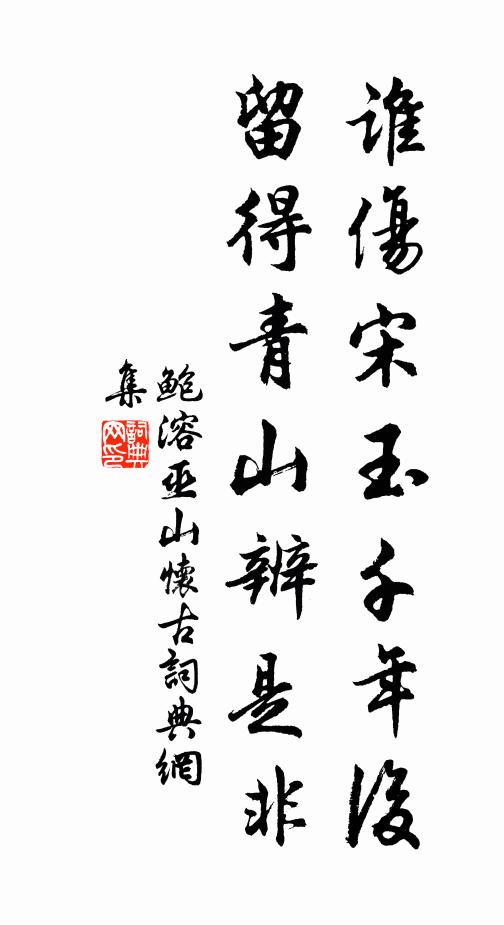 誰傷宋玉千年後
留得青山辨是非
鮑溶巫山懷古詞典網
集
詞典網印